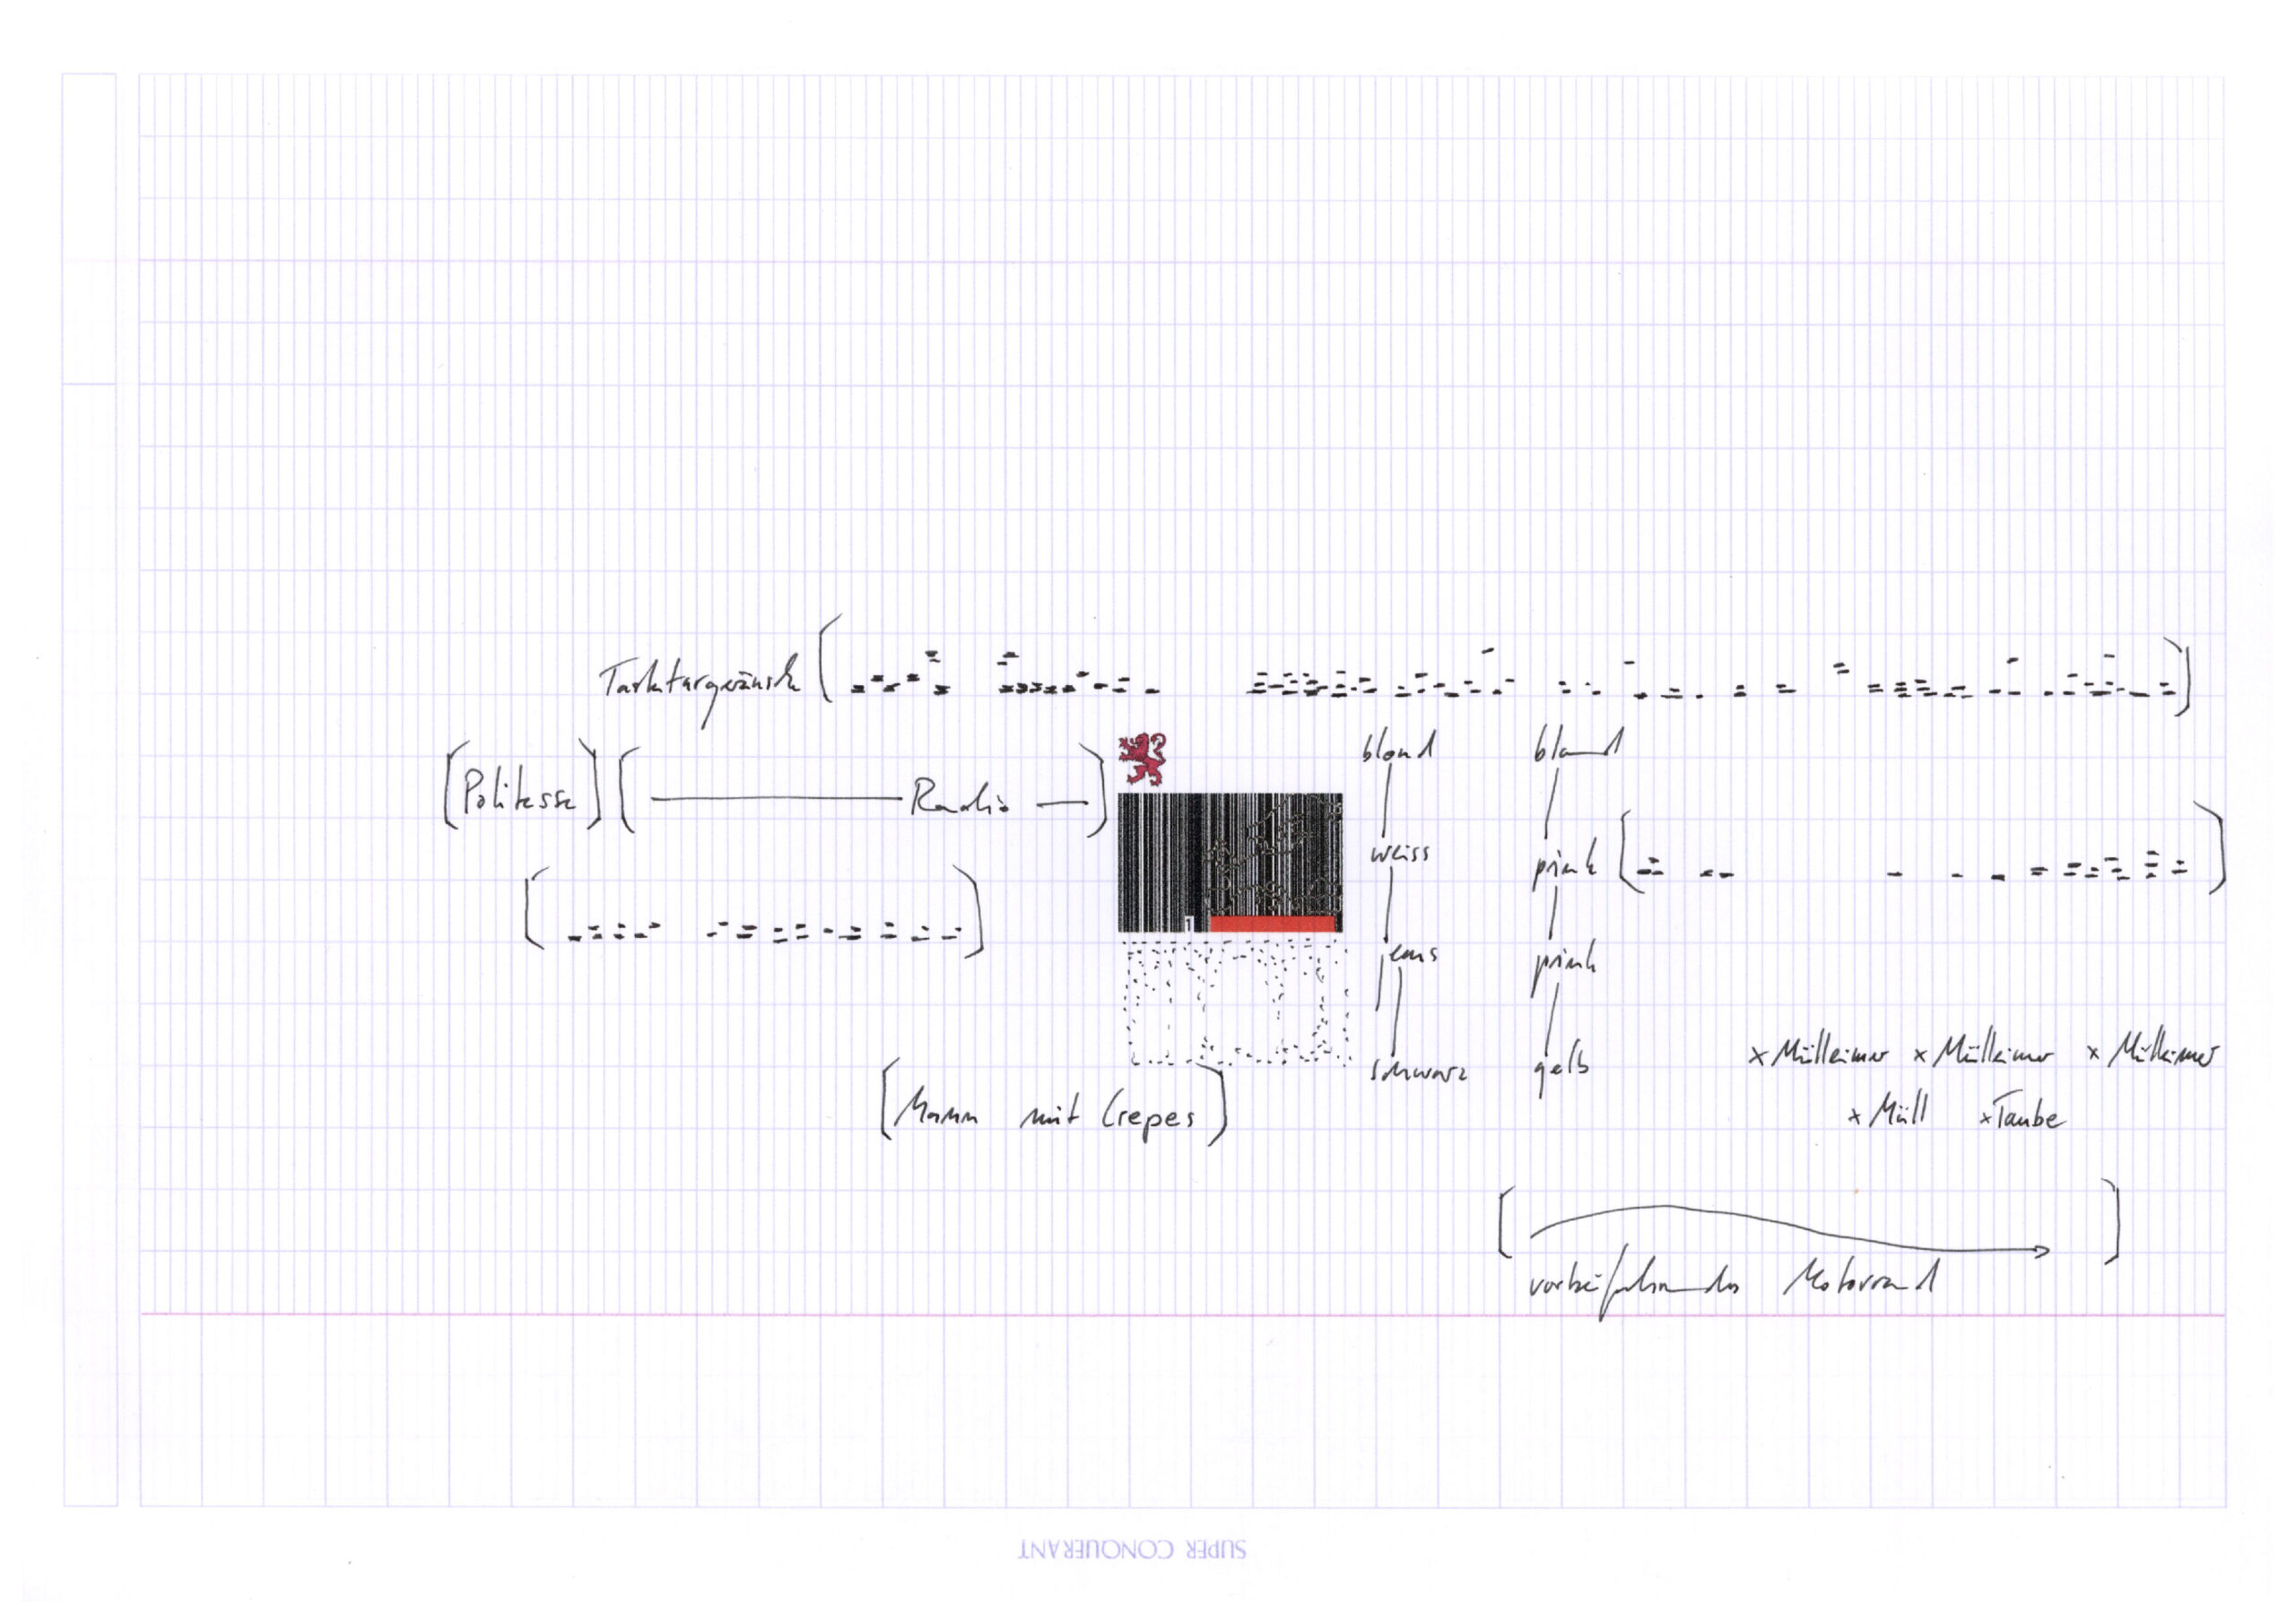 Tastaturgeräusch
blond blond
[Politesse] Radio
weiss pink
1
jeans pink
schwarz gelb
x Mülleimer x Mülleimer x Mülleimer
[Mann mit Crepes] x Müll x Taube
vorbeifahrendes Motorrad
SUPER CONQUERANT